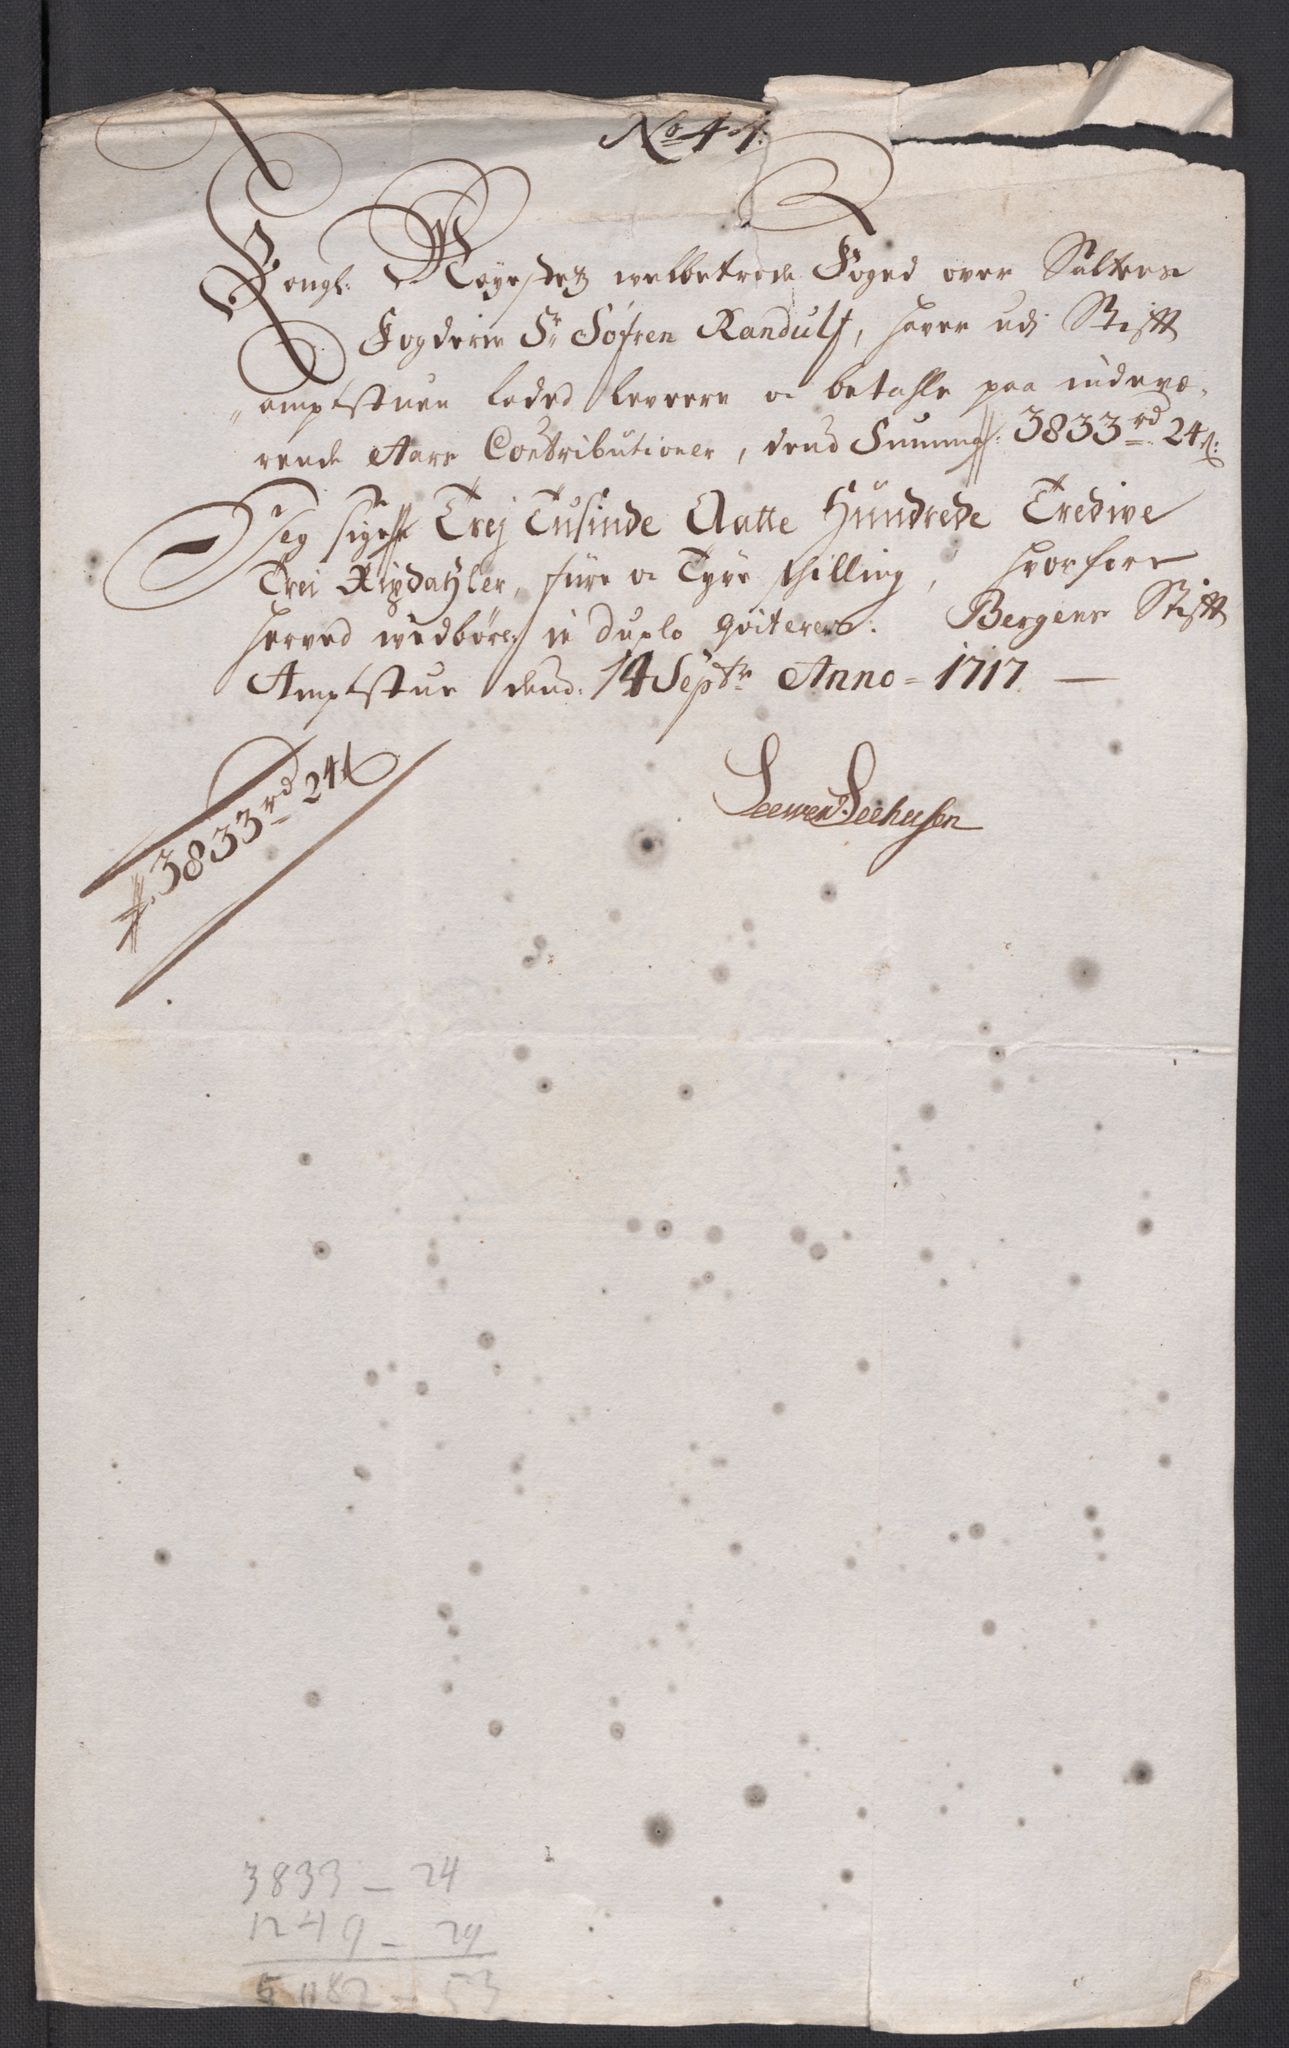 No 41:
Kongl: Mayestetz welbetrode Foged over Saltens
Fogderie Sr Søfren Randulf, haver udj Stift
amptstuen ladet levere oc betahle paa indevæ-
rende Aars Contributioner, dend Summa: 3833 rd 24 s:
Jeg siger Trej Tusinde Aatte Hundrede Tredive
Trei Rixdahler, fiire oc Tyve skilling, hvorfore
herved in duplo qviteres: Bergens Stift
Amptstue dend: 14 Septr Anno = 1717
Leewer Seehusen
3833 rd 24 s
3833 — 24
1249 — 29
5082 — 53